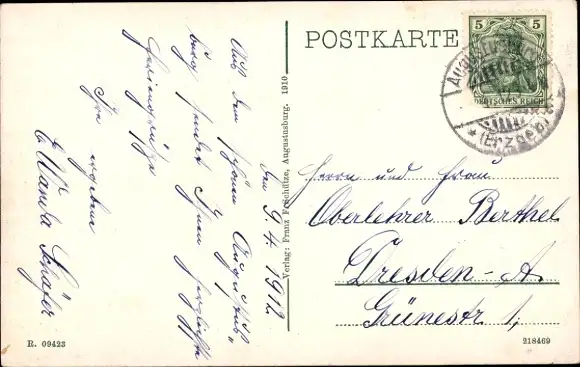 POSTKARTE
5 5
DEUTSCHES REICH
AUGUSTUSBURG
* (Erzgeb.) *
den 9.4.1912.
Aus dem schönen Augustus-
burg sendet Ihnen herzliche
Feriengrüße
Ihre ergebene
Wanda Schäfer.
Herrn und Frau
Oberlehrer Berthel
Dresden-A.
Grünestr 1,
Verlag: Franz Froschütze, Augustusburg. 1910
R. 09423
218469